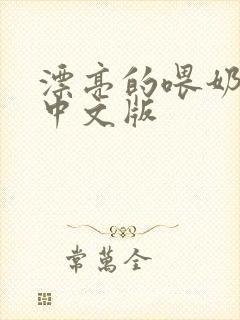 漂亮的喂奶
中文版
常萬全